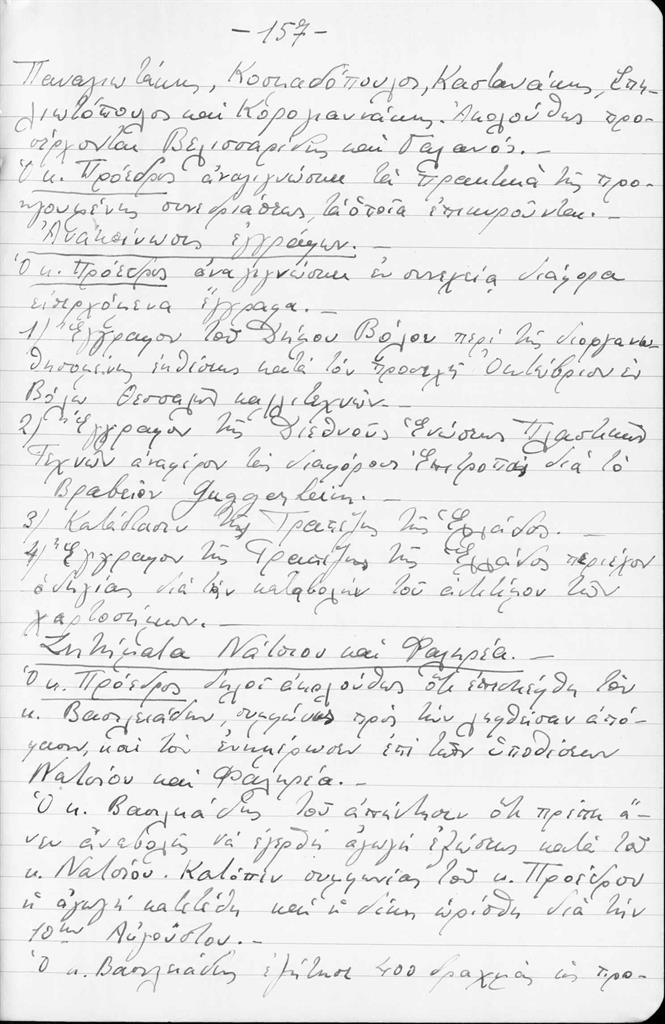 -157-
Παναγιωτάκης, Κοσκαδόπουλος, Καστανάκης, Σπη-
λιωτόπουλος και Κορογιαννάκης. Ἀκολούθως προ-
σέρχονται Βελισσαρίδης καὶ Γαλανός.-
Ὁ κ. Πρόεδρος ἀναγιγνώσκει τὰ πρακτικὰ τῆς προ-
ηγουμένης συνεδριάσεως, τὰ ὁποῖα ἐπικυροῦνται.-
Ἀνακοίνωσις ἐγγράφων.-
Ὁ κ. Πρόεδρος ἀναγιγνώσκει ἐν συνεχείᾳ διάφορα
εἰσερχόμενα ἔγγραφα.-
1) Ἔγγραφον τοῦ Δήμου Βόλου περὶ τῆς διοργανω-
θησομένης ἐκθέσεως κατὰ τὸν προσεχῆ Ὀκτώβριον ἐν
Βόλῳ Θεσσαλῶν καλλιτεχνῶν.-
2) Ἔγγραφον τῆς Διεθνοῦς Ἑνώσεως Πλαστικῶν
Τεχνῶν ἀναφέρον τὰς διαφόρους Ἐπιτροπὰς διὰ τὸ
Βραβεῖον Guggenheim.-
3) Κατάστασιν τῆς Τραπέζης τῆς Ἑλλάδος.-
4) Ἔγγραφον τῆς Τραπέζης τῆς Ἑλλάδος περιέχον
ὁδηγίας διὰ τὴν καταβολὴν τοῦ ἀντιτίμου τῶν
χαρτοσήμων.-
Ζητήματα Νάτσιου καὶ Φαληρέα.-
Ὁ κ. Πρόεδρος δηλοῖ ἀκολούθως ὅτι ἐπεσκέφθη τὸν
κ. Βασιλειάδην, συμφώνως πρὸς τὴν ληφθεῖσαν ἀπό-
φασιν, καὶ τὸν ἐνημέρωσεν ἐπὶ τῶν ὑποθέσεων
Νατσιου καὶ Φαληρέα.-
Ὁ κ. Βασιλειάδης τοῦ ἀπήντησεν ὅτι πρέπει ἄ-
νευ ἀναβολῆς νὰ ἐγερθῇ ἀγωγὴ ἐξώσεως κατὰ τοῦ
κ. Νατσιου. Κατόπιν συμφωνίας τοῦ κ. Προέδρου
ἡ ἀγωγὴ κατετέθη καὶ ἡ δίκη ὡρίσθη διὰ τὴν
10ην Αὐγούστου.-
Ὁ κ. Βασιλειάδης ἐζήτησε 400 δραχμὰς ὡς προ-